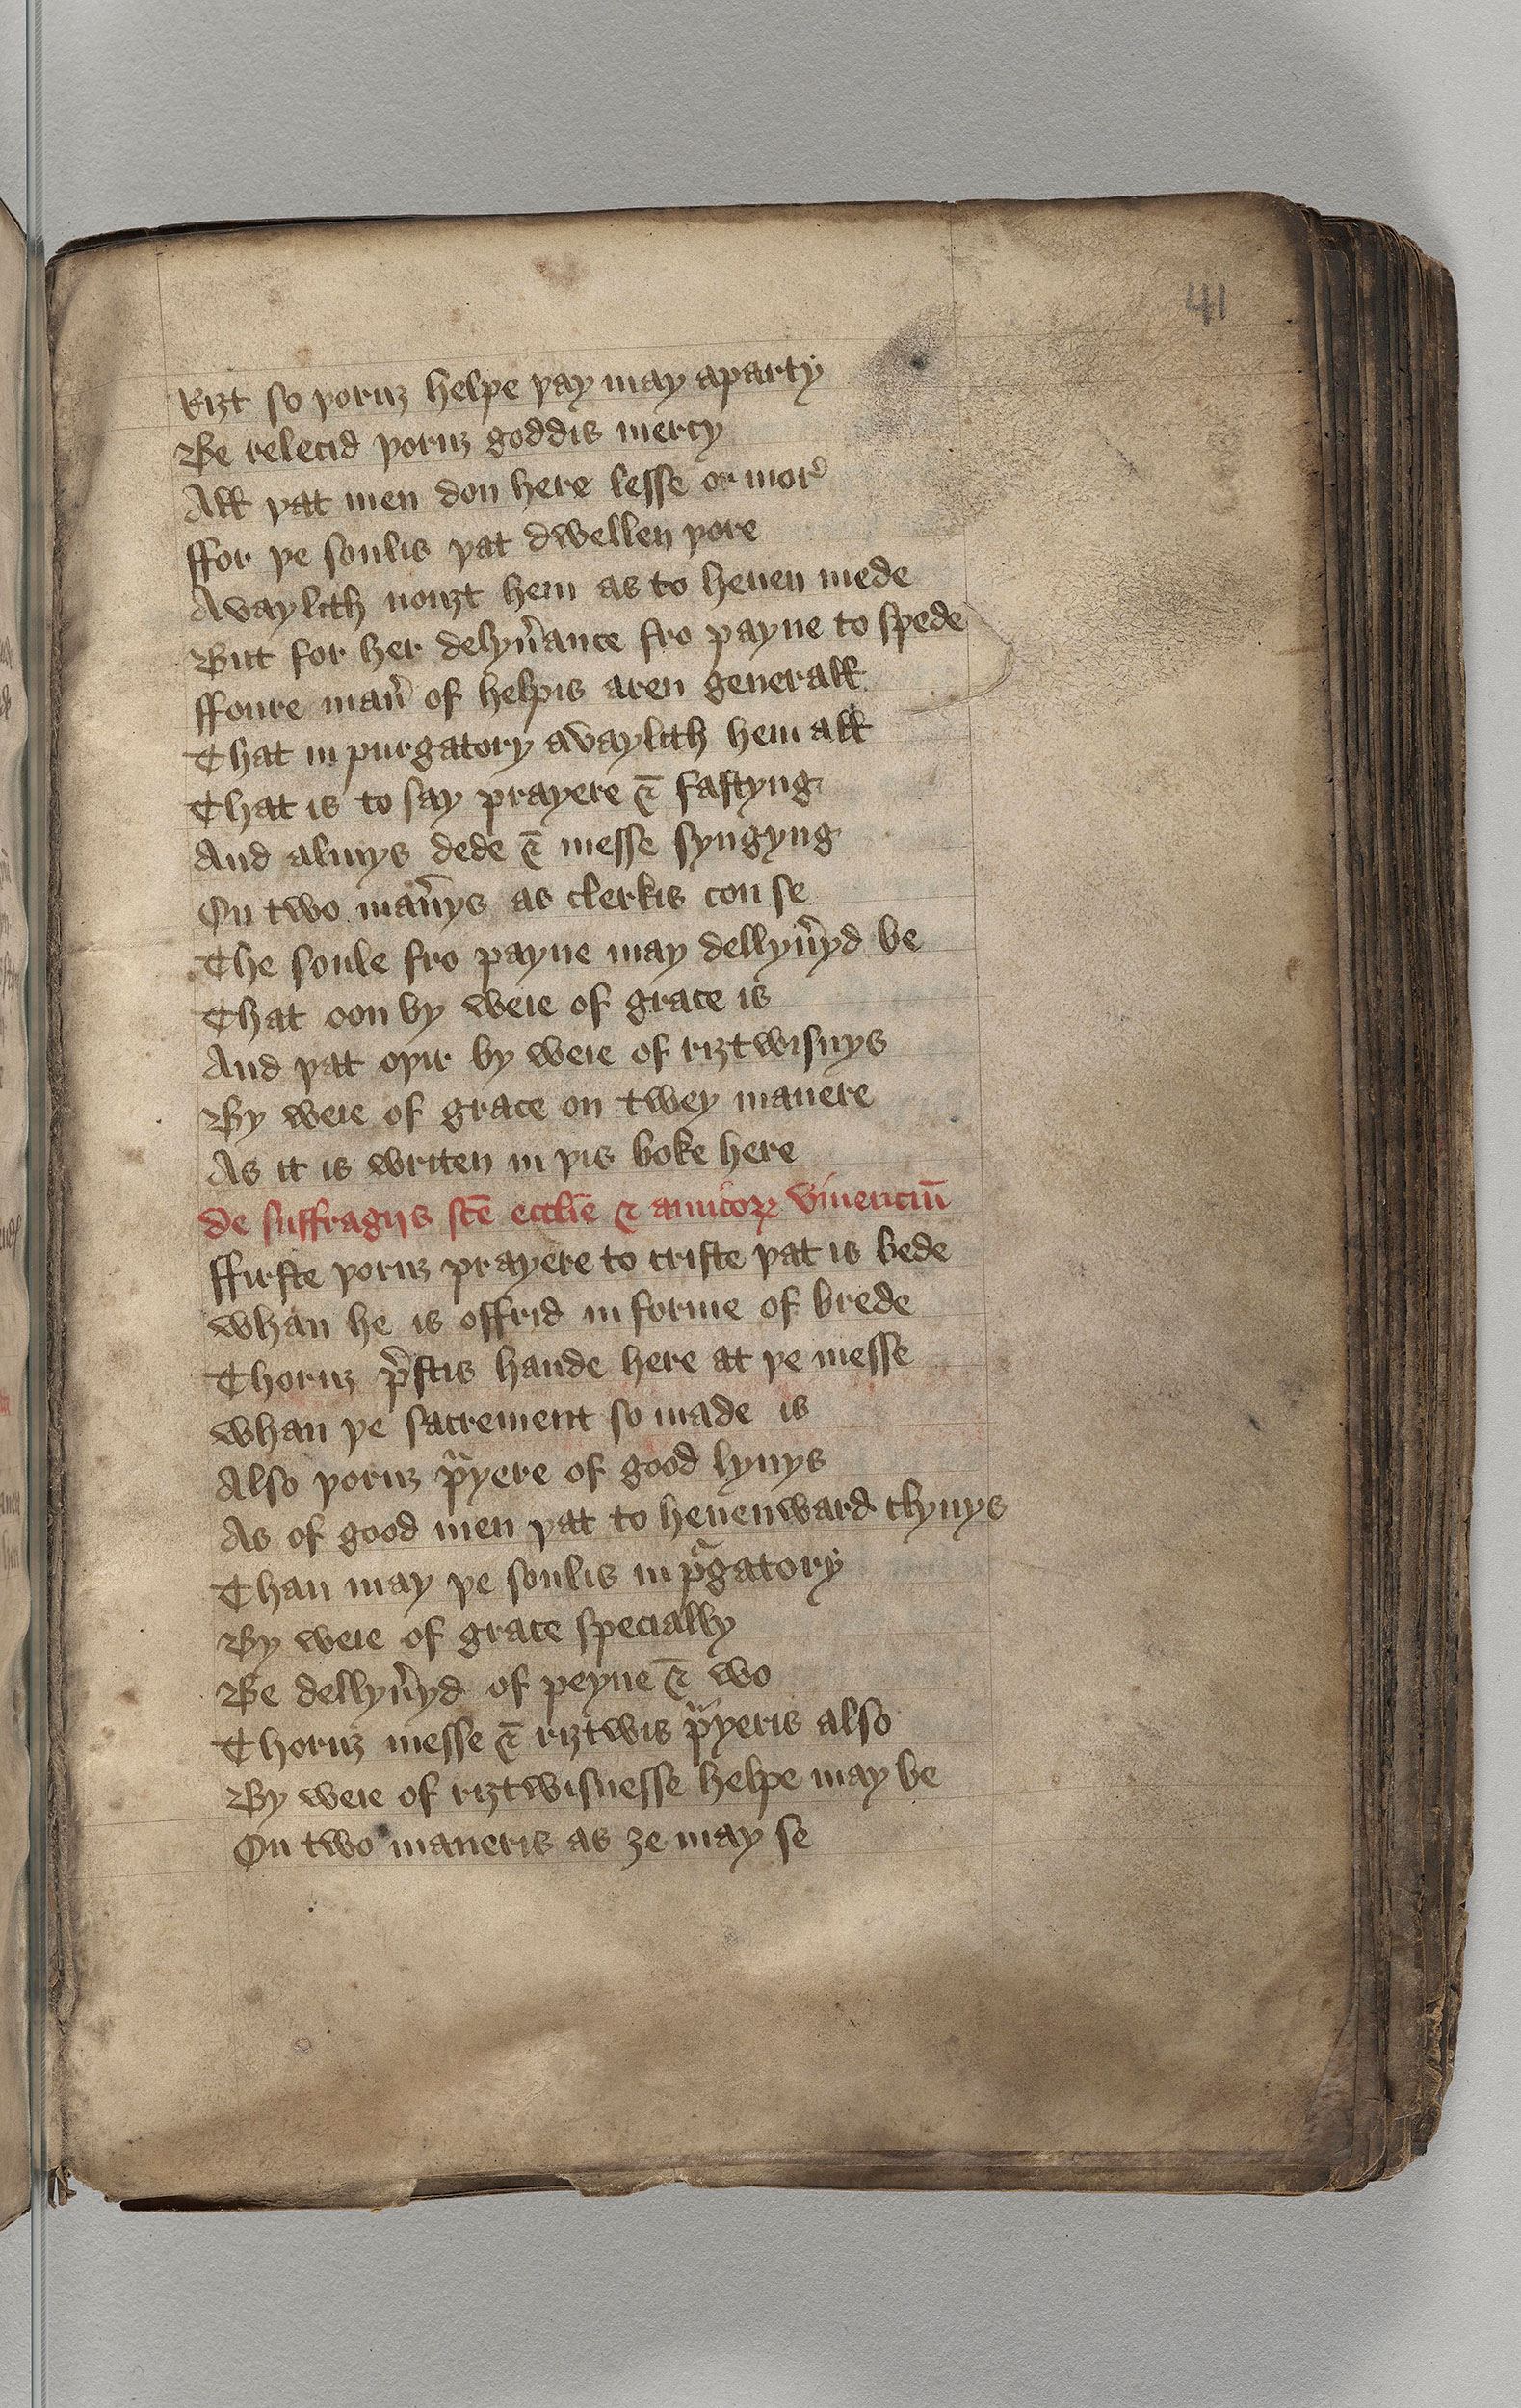 41
Riȝt so þoruȝ helpe þay may aparty
Be relecid þoruȝ goddis mercy
All þat men don here lesse or mor᾽
ffor þe soulis þat dwellen þore
Avaylith nouȝt hem as to heuen mede
But for her delyu᾽ance fro payne to spede
ffoure man᾽ of helpis aren generall
That in purgatory avaylith hem all
That is to say prayere ⁊ fastyng
And almys dede ⁊ messe syngyng
On two man᾽ys as clerkis con se
The soule fro payne may dellyu᾽yd be
That oon by weie of grace is
And þat oþir by weie of riȝtwisnys
By weie of grace on twey manere
As it is writen in þis boke here
de suffragijs sc̄e eccl̄ie ⁊ amicoꝝ viuenciū
ffirste þoruȝ prayere to criste þat is bede
whan he is offrid in forme of brede
Thoruȝ p᾽stis hande here at þe messe
whan þe sacrement so made is
Also þoruȝ pͣyere of good lyuys
As of good men þat to heuenward clyuys
Than may þe soulis in pͬgatory
By weie of grace specially
Be dellyu᾽yd of peyne ⁊ wo
Thoruȝ messe ⁊ riȝtwis pͣyeris also
By weie of riȝtwisnesse helpe may be
On two maneris as ȝe may se